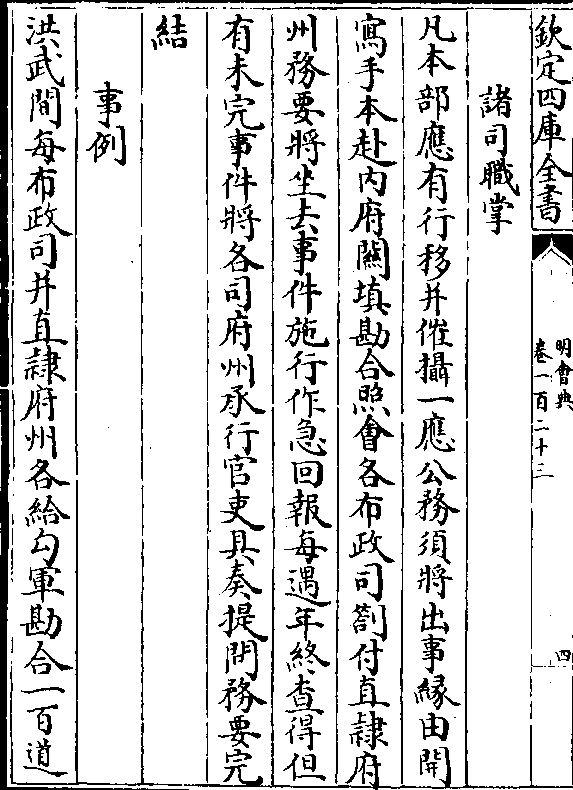 欽定四庫全書
明會典
卷一百二十三
四
諸司職掌
凡本部應有行移并催攝一應公務須將出事緣由開
寫手本赴内府關填勘合照會各布政司劄付直隷府
州務要將坐去事件施行作急回報每遇年終查得但
有未完事件將各司府州承行官吏具奏提問務要完
結
事例
洪武間每布政司并直隷府州各給勾軍勘合一百道